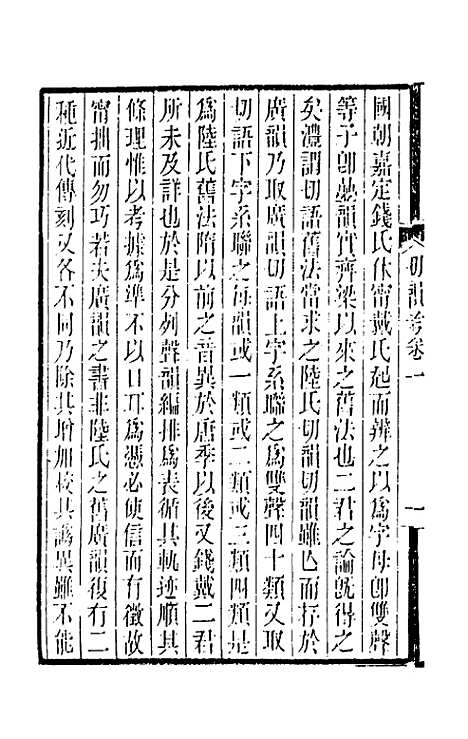 切韻考卷一
一
國朝嘉定錢氏休甯戴氏起而辨之以爲字母卽雙聲
等子卽曡韻實齊梁以來之舊法也二君之論旣得之
矣澧謂切語舊法當求之陸氏切韻切韻雖亾而存於
廣韻乃取廣韻切語上字系聯之爲雙聲四十類又取
切語下字系聯之每韻或一類或二類或三類四類是
爲陸氏舊法隋以前之音異於唐季以後又錢戴二君
所未及詳也於是分列聲韻編排爲表循其軌迹順其
條理惟以考據爲準不以口耳爲憑必使信而有徵故
甯拙而勿巧若夫廣韻之書非陸氏之舊廣韻復有二
種近代傳刻又各不同乃除其增加校其譌異雖不能